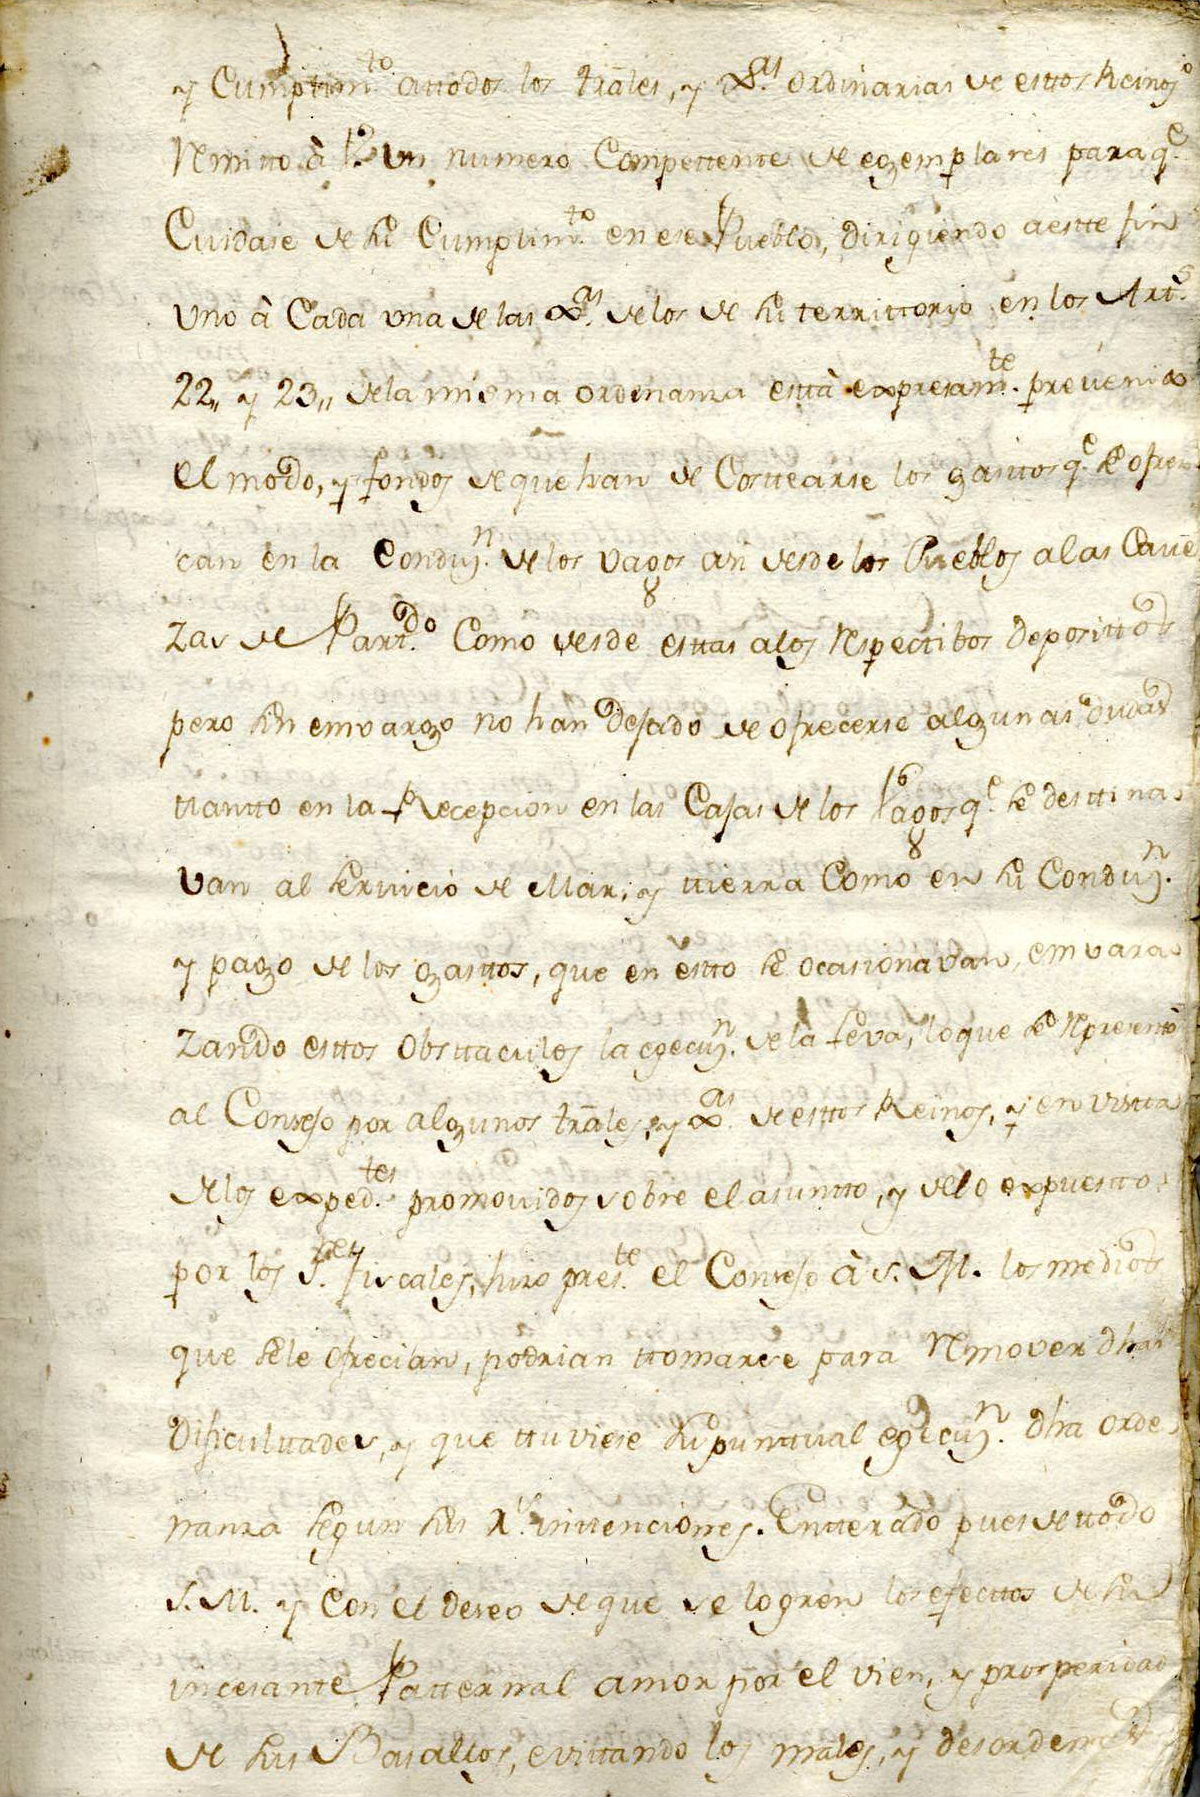 y Cumplim.to attodos los trãles, y Xas. ordinarias de esttos Reinos
Remitto à V. Un numero Compettente de egemplares para q.e
Cuidase de su Cumplim.to en ese Pueblo, dirigiendo a estte fin
uno à Cada una de las Xas. de los de su territtorio en los Art.s
22,, y 23,, de la misma ordenanza está expresam.te prevenido
el modo, y fondos de que han de Costtearse los gasttos q.e se ofrez
can en la Conduz.n de los Vagos asi desde los Pueblos a las Cave
zas de Part.do Como desde esttas alos Respectibos Deposittos
pero sin emvargo no han Dejado de ofrecerse algunas dudas
ttantto en la Recepcion en las Cajas de los Vagos q.e se desttina
van al servicio de Mar, y ttierra Como en su Conduz.n
y pago de los gasttos, que en estto se ocasionavan, emvara
zando esttos Obsttaculos la egecuz.n de la Leva, lo que se Represento
al Consejo por algunos trãles, y Xas. de esttos Reinos, y en vistta
de los exped.tes promovidos sobre el asuntto, y de lo expuestto
por los S.res Fiscales, hizo pres.te el Consejo à S. M. los medios
que se le ofrecian, podrian ttomarse para Remover dhas
Dificulttades, y que ttuviese su punttual egecuz.n dha orde
nanza segun sus R.s inttenciones. Entterado pues de ttodo
S. M. y Con el deseo de que se logren los efecttos de su
incesante Patternal amor por el vien, y prosperidad
de sus Basallos, evittando los males, y desordenes